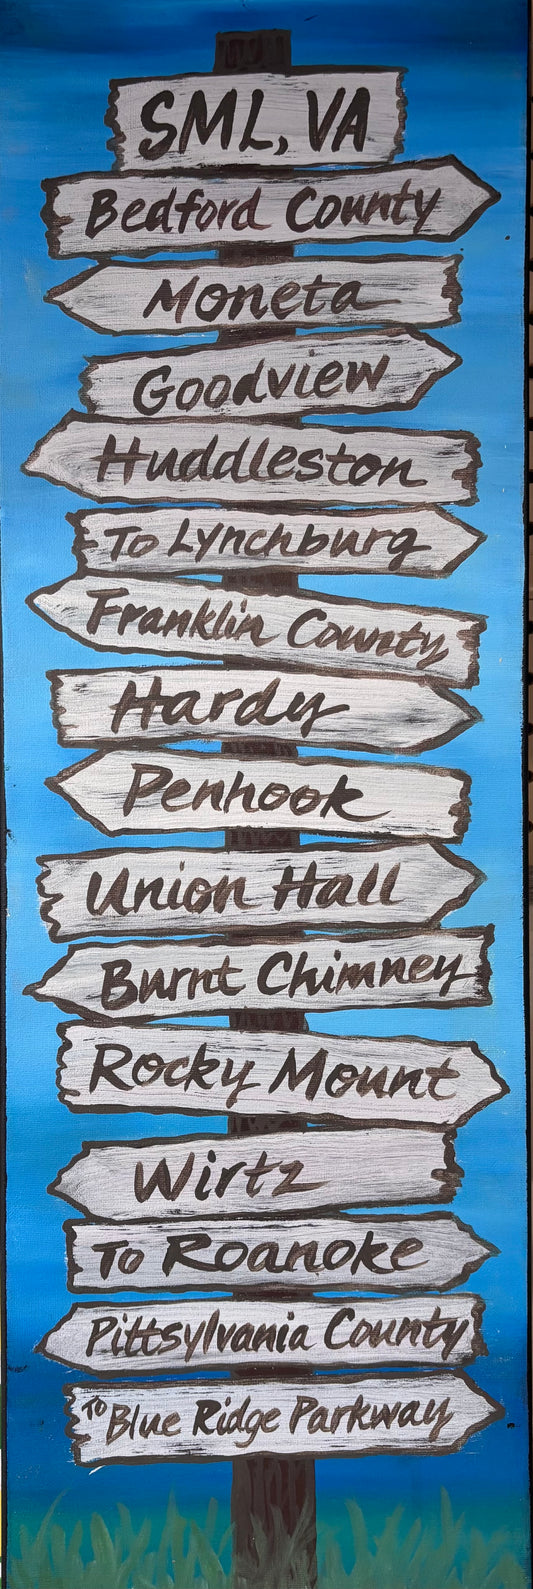 SML, VA
Bedford County
Moneta
Goodview
Huddleston
To Lynchburg
Franklin County
Hardy
Penhook
Union Hall
Burnt Chimney
Rocky Mount
Wirtz
To Roanoke
Pittsylvania County
To Blue Ridge Parkway